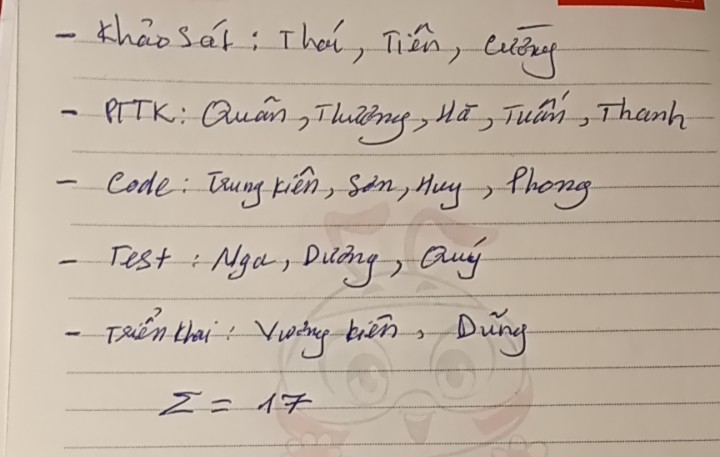 - Khảo sát : Thái, Tiến, Cường
- PTTK: Quân, Thương, Hà, Tuấn, Thanh
- Code: Trung Kiên, Sơn, Huy, Phong
- Test : Nga, Dương, Quý
- Triển khai: Vương Kiên, Dũng
Σ = 17